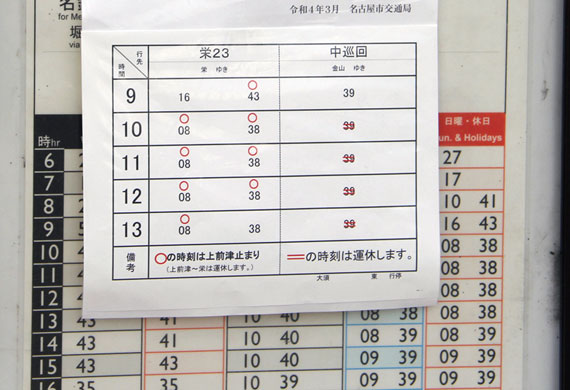 名
for Me
堀
via
令和４年３月 名古屋市交通局
行先 時間 栄２３ 中巡回
栄 ゆき 金山 ゆき
9 16 ○43 39
10 ○08 ○38 39
11 ○08 ○38 39
12 ○08 ○38 39
13 ○08 38 39
備考 ○の時刻は上前津止まり ＝の時刻は運休します。
（上前津～栄は運休します。）
大須 東 行停
日曜・休日
時hr un. & Holidays
6 27
7 17
8 10 41
9 16 43
10 08 38
11 08 39
12 38 08 39
13 43 41 10 40 08 38 08 39
14 43 41 10 40 08 39 08 39
15 43 43 10 40 09 39 09 39
16 35 35 10 39 09 39 09 39